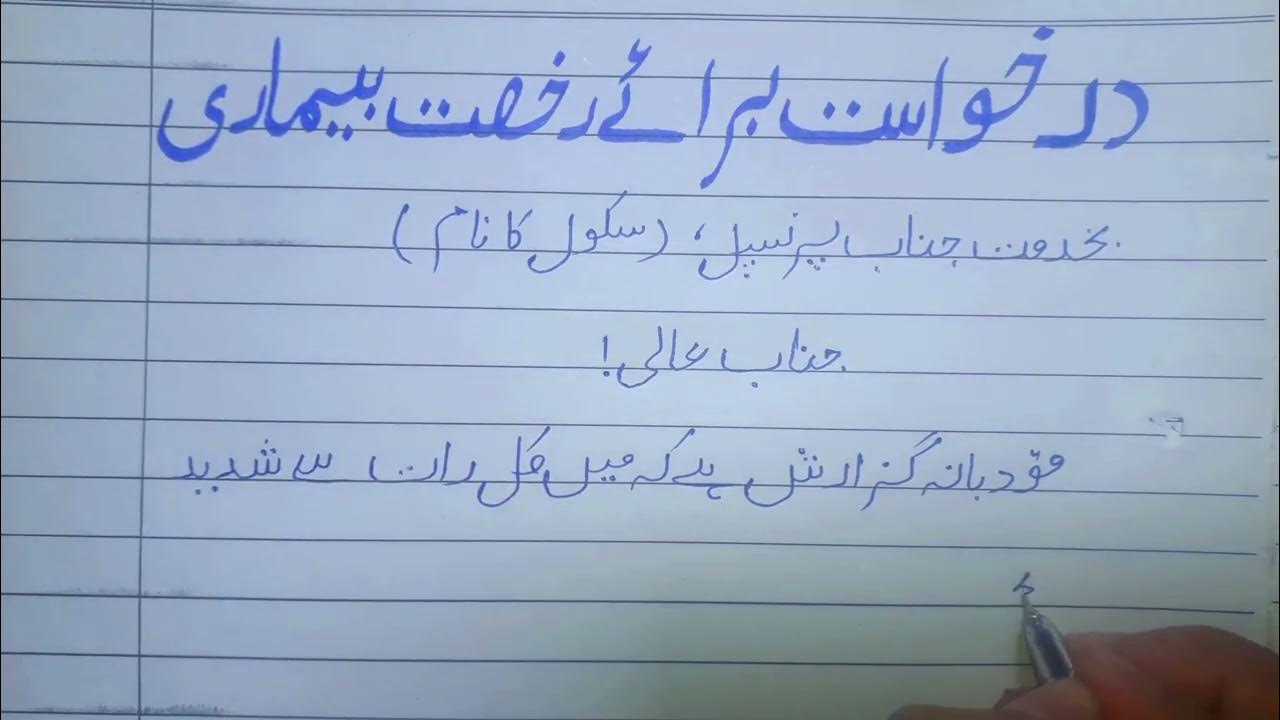 درخواست برائے رخصت بیماری
بخدمت جناب پرنسپل، (سکول کا نام)
جناب عالی!
مؤدبانہ گزارش ہے کہ میں کل رات سے شدید